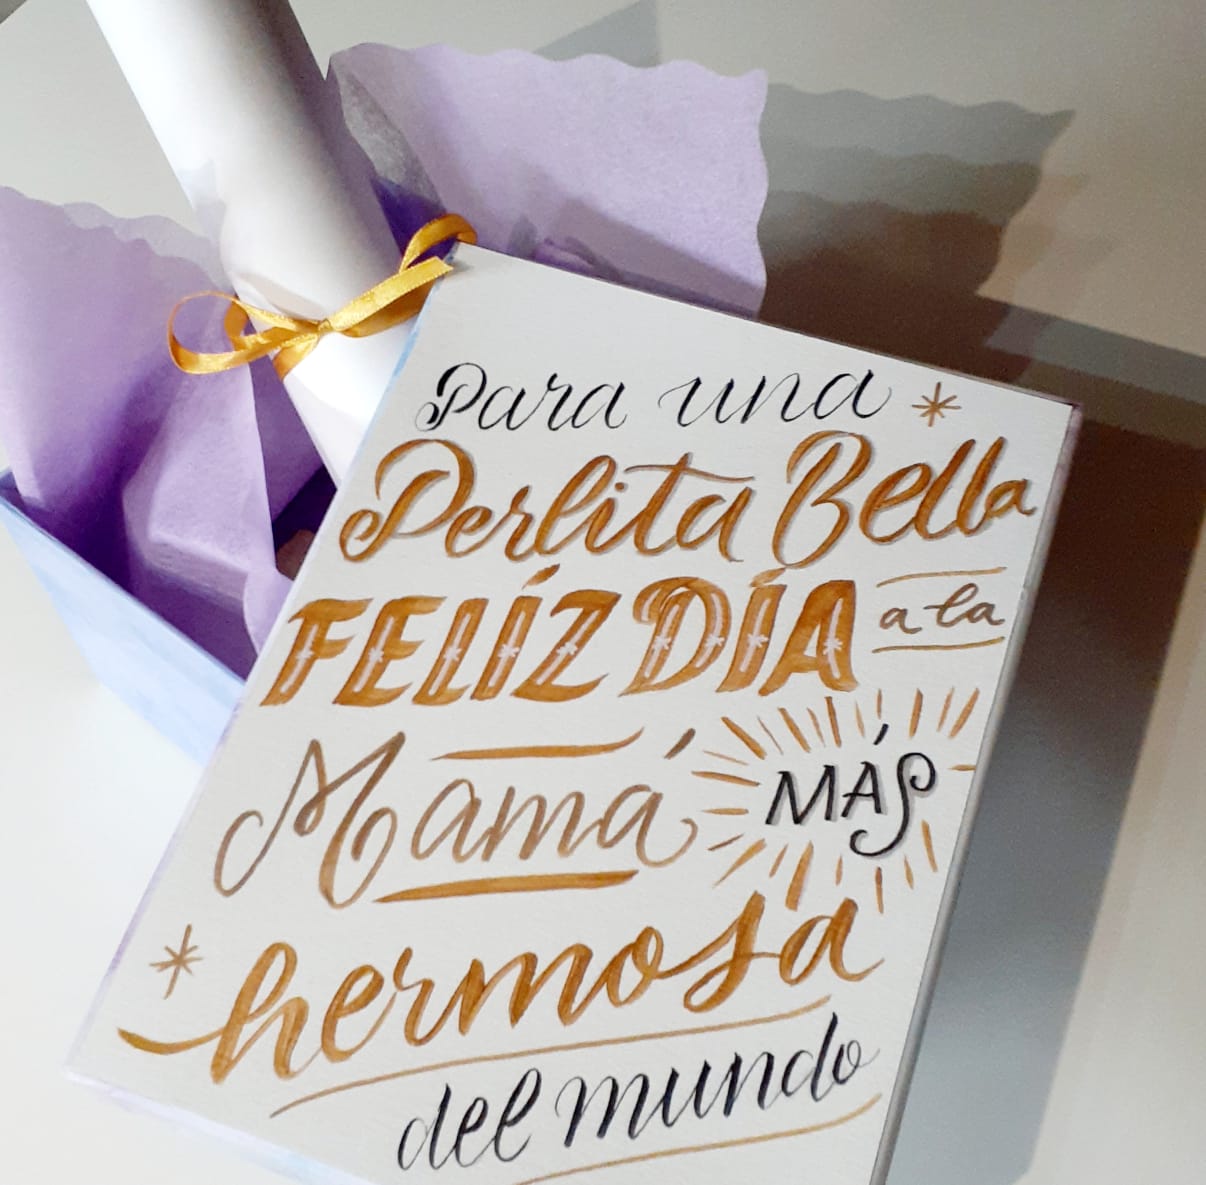 Para una
Perlita Bella
FELÍZ DÍA a la
Mamá MÁS
hermosa
del mundo